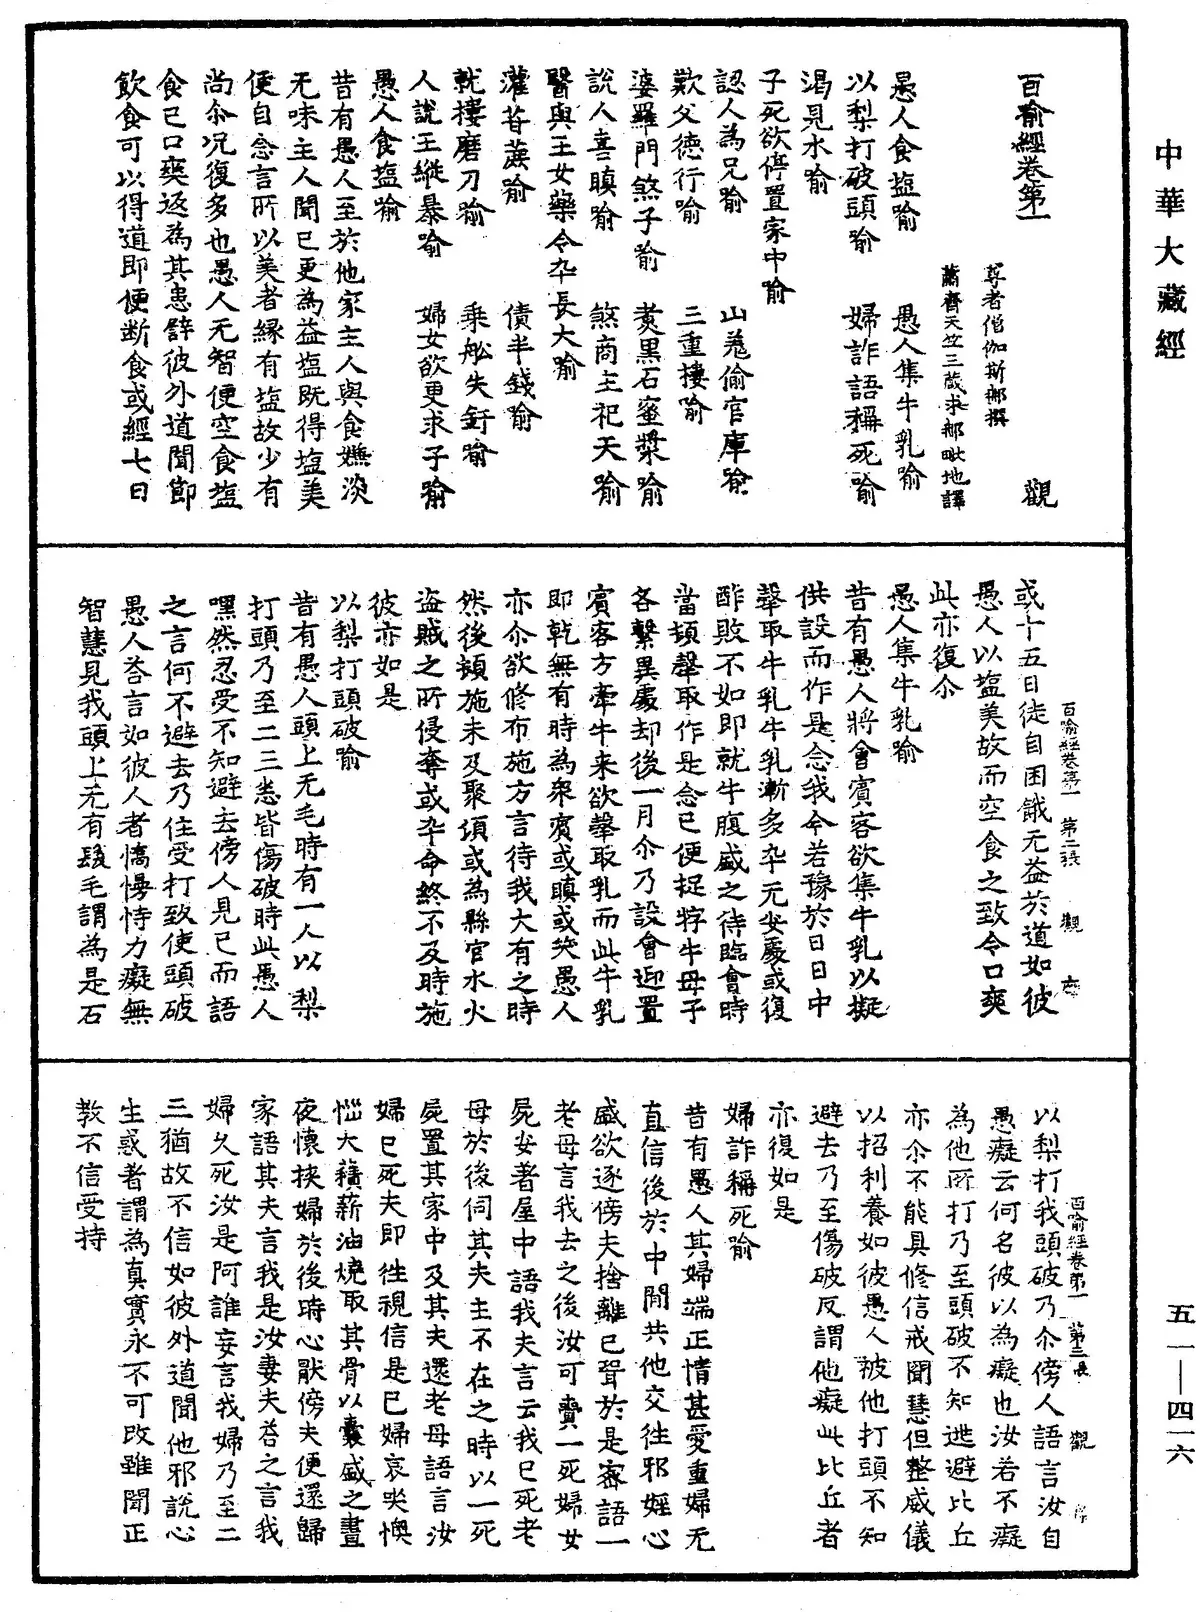 中華大藏經
百喻經卷第一 觀
尊者僧伽斯那撰
蕭齊天竺三藏求那毗地譯
愚人食塩喻 愚人集牛乳喻
以梨打破頭喻 婦詐語稱死喻
渴見水喻
子死欲停置家中喻
認人為兄喻 山羗偷官庫喻
歎父德行喻 三重樓喻
婆羅門煞子喻 煑黑石蜜漿喻
說人喜瞋喻 煞商主祀天喻
醫與王女藥令卒長大喻
灌苷蔗喻 債半錢喻
就樓磨刀喻 乘舩失釪喻
人說王縱暴喻 婦女欲更求子喻
愚人食塩喻
昔有愚人至於他家主人與食嫌淡
无味主人聞已更為益塩既得塩美
便自念言所以美者緣有塩故少有
尚尒况復多也愚人无智便空食塩
食已口爽返為其患辟彼外道聞節
飲食可以得道即便斷食或經七日
百喻經卷第一 第二張 觀
或十五日徒自困餓无益於道如彼
愚人以塩美故而空食之致令口爽
此亦復尒
愚人集牛乳喻
昔有愚人將會賓客欲集牛乳以擬
供設而作是念我今若豫於日日中
𤚲取牛乳牛乳漸多卒无安處或復
酢敗不如即就牛腹盛之待臨會時
當頓𤚲取作是念已便捉牸牛母子
各繫異處却後一月尒乃設會迎置
賓客方牽牛来欲𤚲取乳而此牛乳
即乾無有時為衆賓或瞋或笑愚人
亦尒欲修布施方言待我大有之時
然後頓施未及聚頃或為縣官水火
盗賊之所侵奪或卒命終不及時施
彼亦如是
以梨打頭破喻
昔有愚人頭上无毛時有一人以梨
打頭乃至二三悉皆傷破時此愚人
嘿然忍受不知避去傍人見已而語
之言何不避去乃住受打致使頭破
愚人荅言如彼人者憍慢恃力癡無
智慧見我頭上无有髮毛謂為是石
百喻經卷第一 第三張 觀
以梨打我頭破乃尒傍人語言汝自
愚癡云何名彼以為癡也汝若不癡
為他所打乃至頭破不知逃避比丘
亦尒不能具修信戒聞慧但整威儀
以招利養如彼愚人被他打頭不知
避去乃至傷破反謂他癡此比丘者
亦復如是
婦詐稱死喻
昔有愚人其婦端正情甚愛重婦无
直信後於中閒共他交往邪婬心
盛欲逐傍夫捨離已聟於是密語一
老母言我去之後汝可賷一死婦女
屍安著屋中語我夫言云我已死老
母於後伺其夫主不在之時以一死
屍置其家中及其夫還老母語言汝
婦已死夫即往視信是已婦哀哭懊
惱大積薪油燒取其骨以囊盛之晝
夜懷挾婦於後時心猒傍夫便還歸
家語其夫言我是汝妻夫荅之言我
婦久死汝是阿誰妄言我婦乃至二
三猶故不信如彼外道聞他邪說心
生惑著謂為真實永不可改雖聞正
教不信受持
五一—四一六